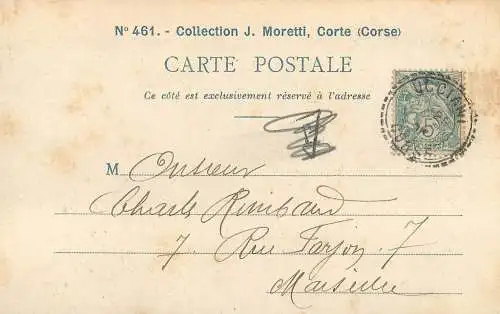 N° 461. - Collection J. Moretti, Corte (Corse)
CARTE POSTALE
Ce côté est exclusivement réservé à l'adresse
UCCIANI
5
Monsieur
Charles Rimbaud
7. Rue Farjon. 7
Marseille